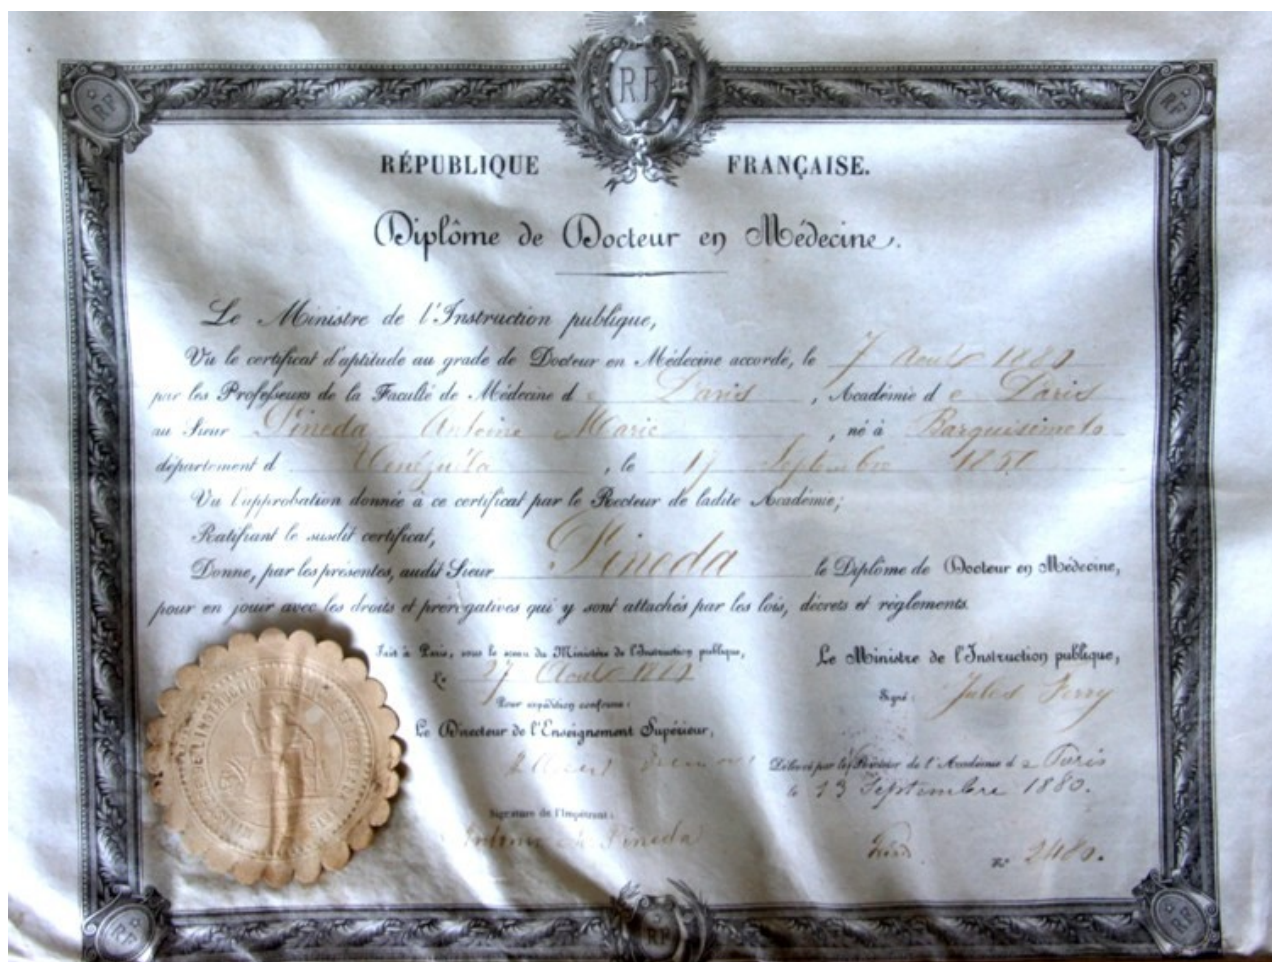 RF
RF
RF
RÉPUBLIQUE FRANÇAISE.
Diplôme de Docteur en Médecine.
Le Ministre de l'Instruction publique,
Vu le certificat d'aptitude au grade de Docteur en Médecine accordé, le 7 Août 1880
par les Professeurs de la Faculté de Médecine de Paris, Académie de Paris
au Sieur Pineda Antoine Marie, né à Barquisimeto
département d Vénézuéla, le 17 Septembre 1850
Vu l'approbation donnée à ce certificat par le Recteur de ladite Académie;
Ratifiant le susdit certificat,
Donne, par les présentes, audit Sieur Pineda le Diplôme de Docteur en Médecine,
pour en jouir avec les droits et prérogatives qui y sont attachés par les lois, décrets et règlements.
Fait à Paris, sous le sceau du Ministère de l'Instruction publique,
Le 27 Août
Pour expédition conforme:
Le Directeur de l'Enseignement Supérieur,
Le Ministre de l'Instruction publique,
Signé: Jules Ferry
Délivré par le Recteur de l'Académie de Paris
le 13 Septembre 1880.
Signature de l'Impétrant:
Antonio M. Pineda
N° 2480.
RF
RF
RF